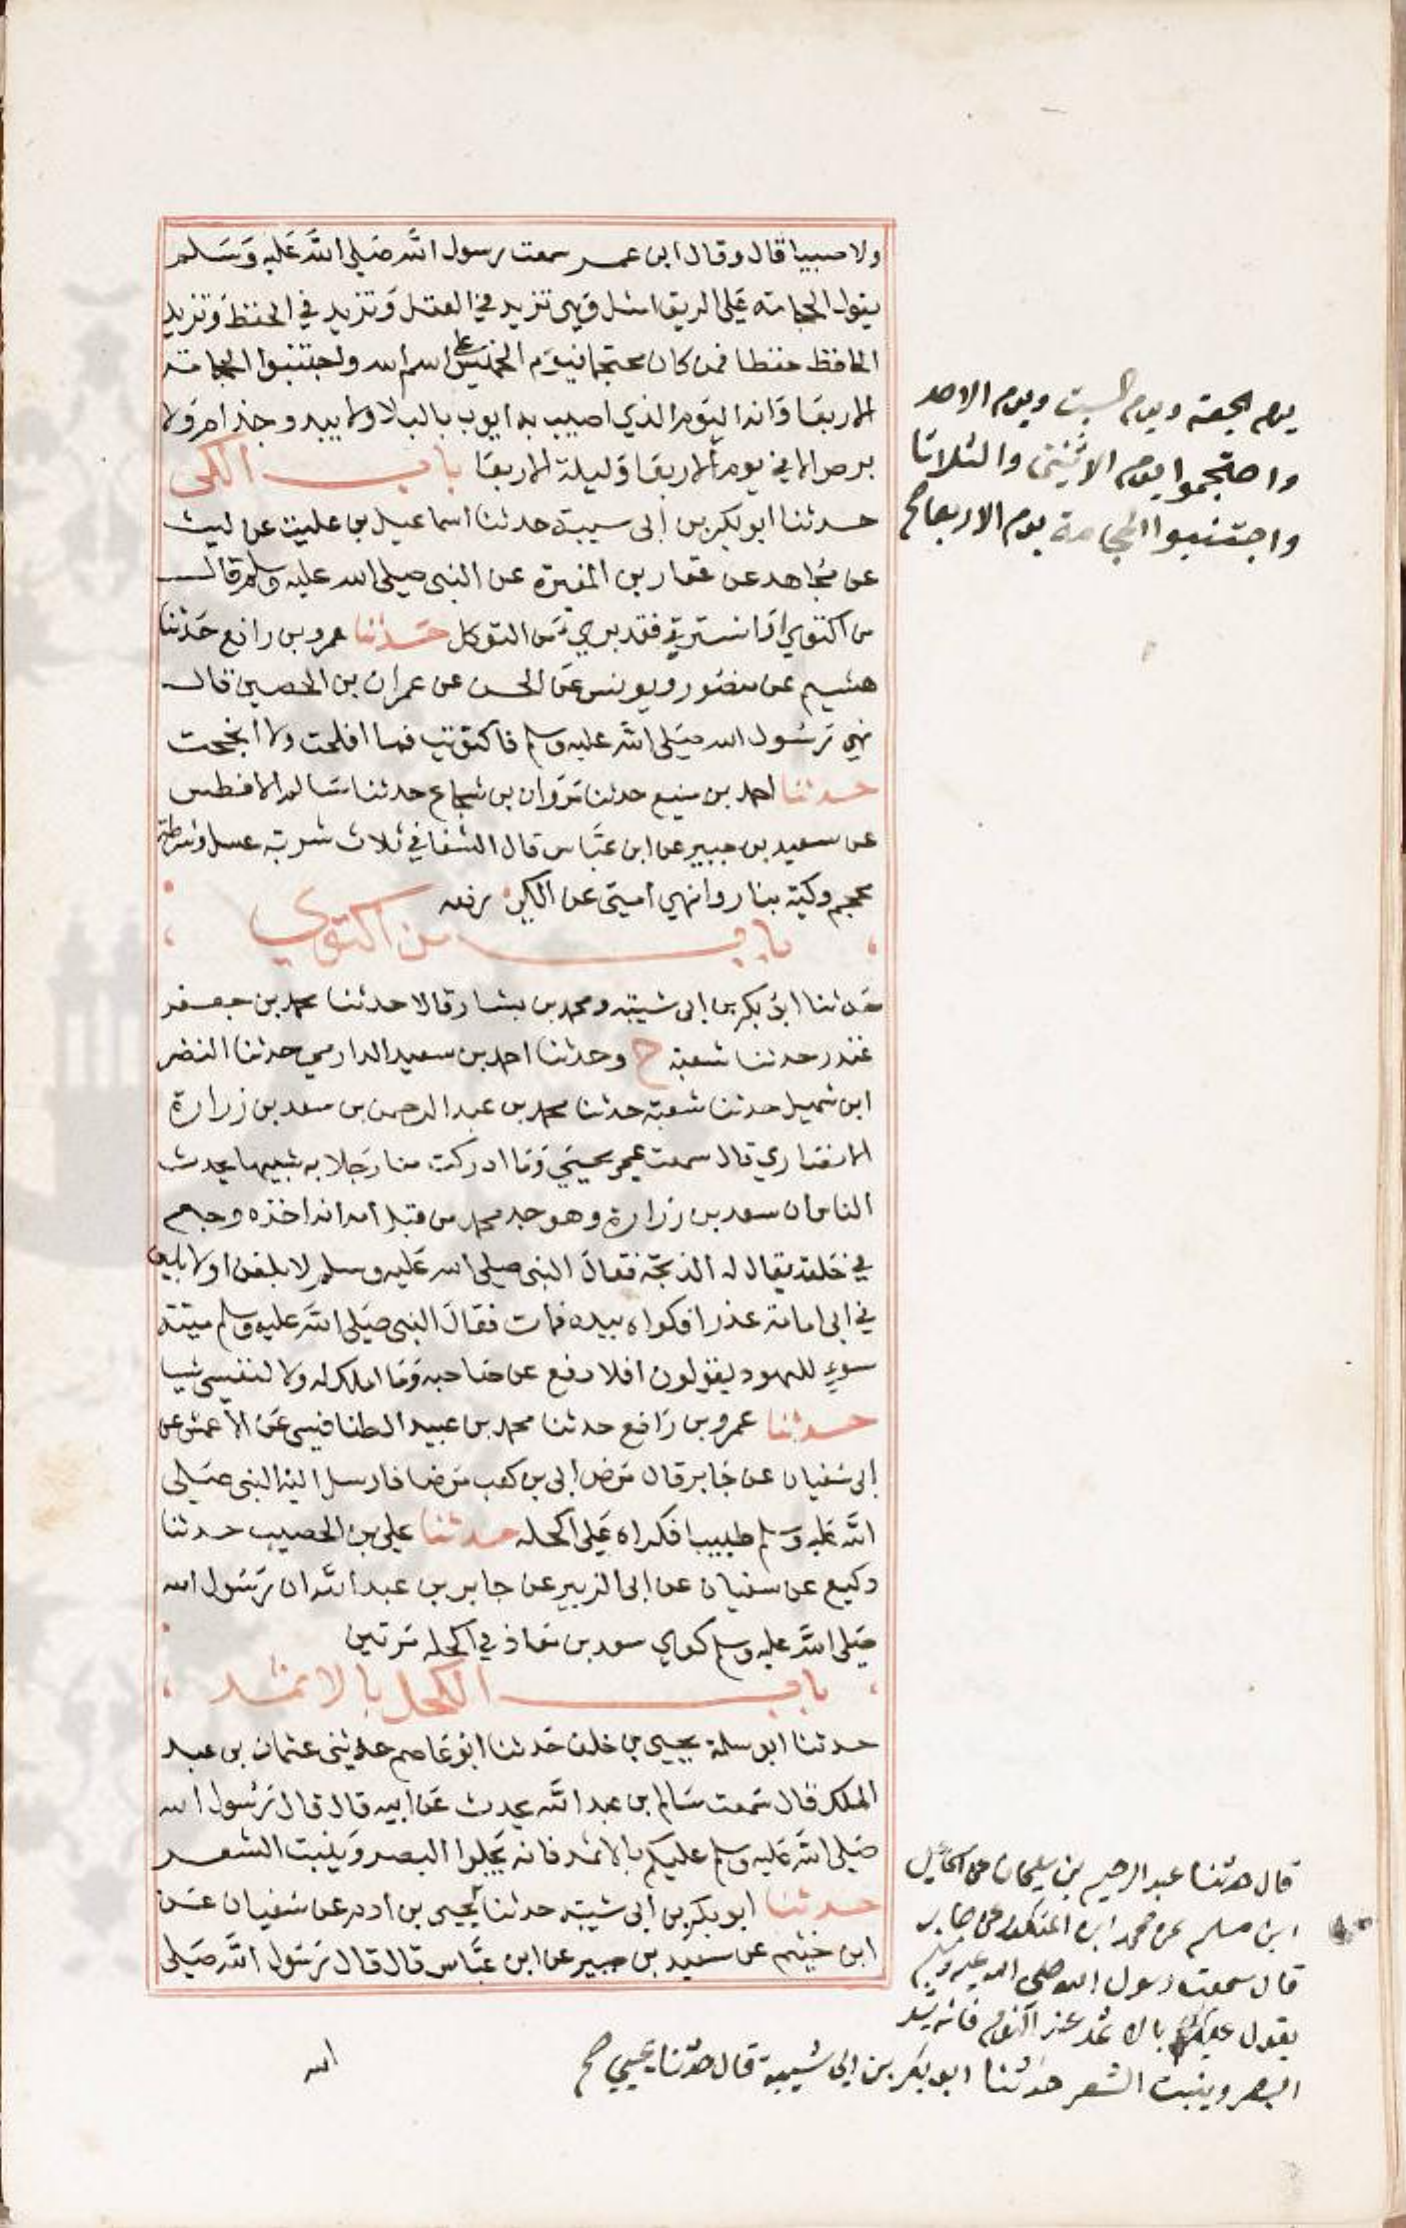 ولا صبيا قال وقال ابن عمر سمعت رسول الله صلى الله عليه وسلم
يقول الحجامة على الريق امثل وهي تزيد في العقل وتزيد في الحفظ وتزيد
الحافظ حفظا فمن كان محتجما فيوم الخميس على اسم الله واجتنبوا الحجامة
يوم الجمعة ويوم السبت ويوم الاحد
واحتجموا يوم الاثنين والثلاثا
واجتنبوا الحجامة يوم الاربعا صح
الاربعا فانه اليوم الذي اصيب به ايوب بالبلا ولا يبدو جذام ولا
برص الا في يوم الاربعا وليلة الاربعا باب الكى
حدثنا ابو بكر بن ابى شيبة حدثنا اسماعيل بن علية عن ليث
عن مجاهد عن عقار بن المغيرة عن النبى صلى الله عليه وسلم قال
من اكتوي او استرقي فقد بري من التوكل حدثنا عمرو بن رافع حدثنا
هشيم عن منصور ويونس عن الحسن عن عمران بن الحصين قال
نهي رسول الله صلى الله عليه وسلم فاكتويت فما افلحت ولا انجحت
حدثنا احمد بن منيع حدثنا مروان بن شجاع حدثنا سالم الافطس
عن سعيد بن جبير عن ابن عباس قال الشفا في ثلاث شربة عسل وشرطة
محجم وكية بنار وانهي امتى عن الكي رفعه
باب من اكتوي
حدثنا ابو بكر بن ابى شيبة ومحمد بن بشار قالا حدثنا محمد بن جعفر
غندر حدثنا شعبة ح وحدثنا احمد بن سعيد الدارمي حدثنا النضر
ابن شميل حدثنا شعبة حدثنا محمد بن عبد الرحمن بن سعد بن زرارة
الانصاري قال سمعت عمى يحيى وما ادركت منا رجلا به شبيها يحدث
الناس ان سعد بن زرارة وهو جد محمد من قبل امه انه اخذه وجع
في حلقه يقال له الذبحة فقال النبى صلى الله عليه وسلم لابلغن او لابلين
في ابى امامة عذرا فكواه بيده فمات فقال النبى صلى الله عليه وسلم ميتة
سوء لليهود يقولون افلا دفع عن صاحبه وما املك له ولا لنفسي شيا
حدثنا عمرو بن رافع حدثنا محمد بن عبيد الطنافسى عن الاعمش عن
ابى سفيان عن جابر قال مرض ابى بن كعب مرضا فارسل اليه النبى صلى
الله عليه وسلم طبيبا فكواه على اكحله حدثنا علي بن الحصيب حدثنا
وكيع عن سفيان عن ابى الزبير عن جابر بن عبد الله ان رسول الله
صلى الله عليه وسلم كوي سعد بن معاذ في اكحله مرتين
باب الكحل بالاثمد
حدثنا ابو سلمة يحيى بن خلف حدثنا ابو عاصم حدثنى عثمان بن عبد
الملك قال سمعت سالم بن عبد الله يحدث عن ابيه قال قال رسول الله
صلى الله عليه وسلم عليكم بالاثمد فانه يجلوا البصر وينبت الشعر
حدثنا ابو بكر بن ابى شيبة حدثنا يحيى بن ادم عن سفيان عن
ابن خثيم عن سعيد بن جبير عن ابن عباس قال قال رسول الله صلى
قال حدثنا عبد الرحيم بن سليمان عن اسماعيل
ابن مسلم عن محمد ابن المنكدر عن جابر
قال سمعت رسول الله صلى الله عليه وسلم
يقول عليكم بالاثمد عند النوم فانه يشد
البصر وينبت الشعر حدثنا ابو بكر بن ابى شيبة قال حدثنا يحيى صح
الله